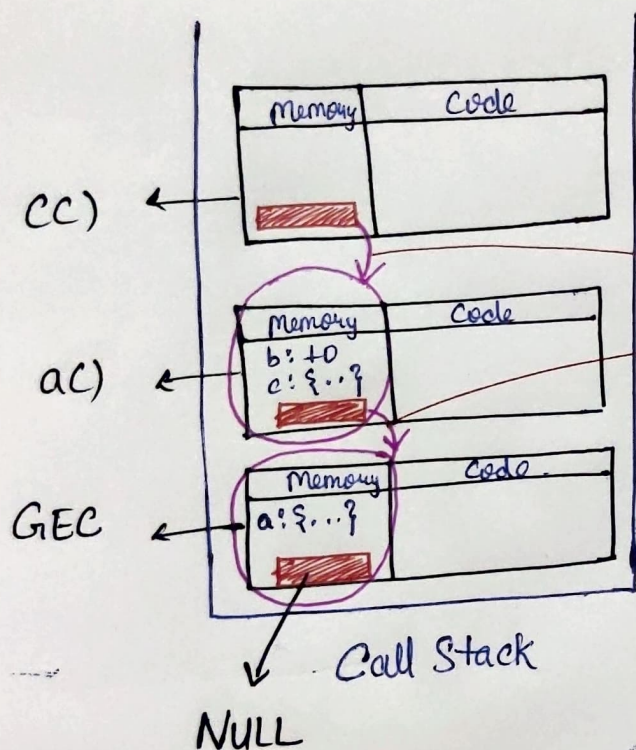 Memory Code
c()
Memory Code
b: 10
c: {...}
a()
Memory Code
a: {...}
GEC
Call Stack
NULL